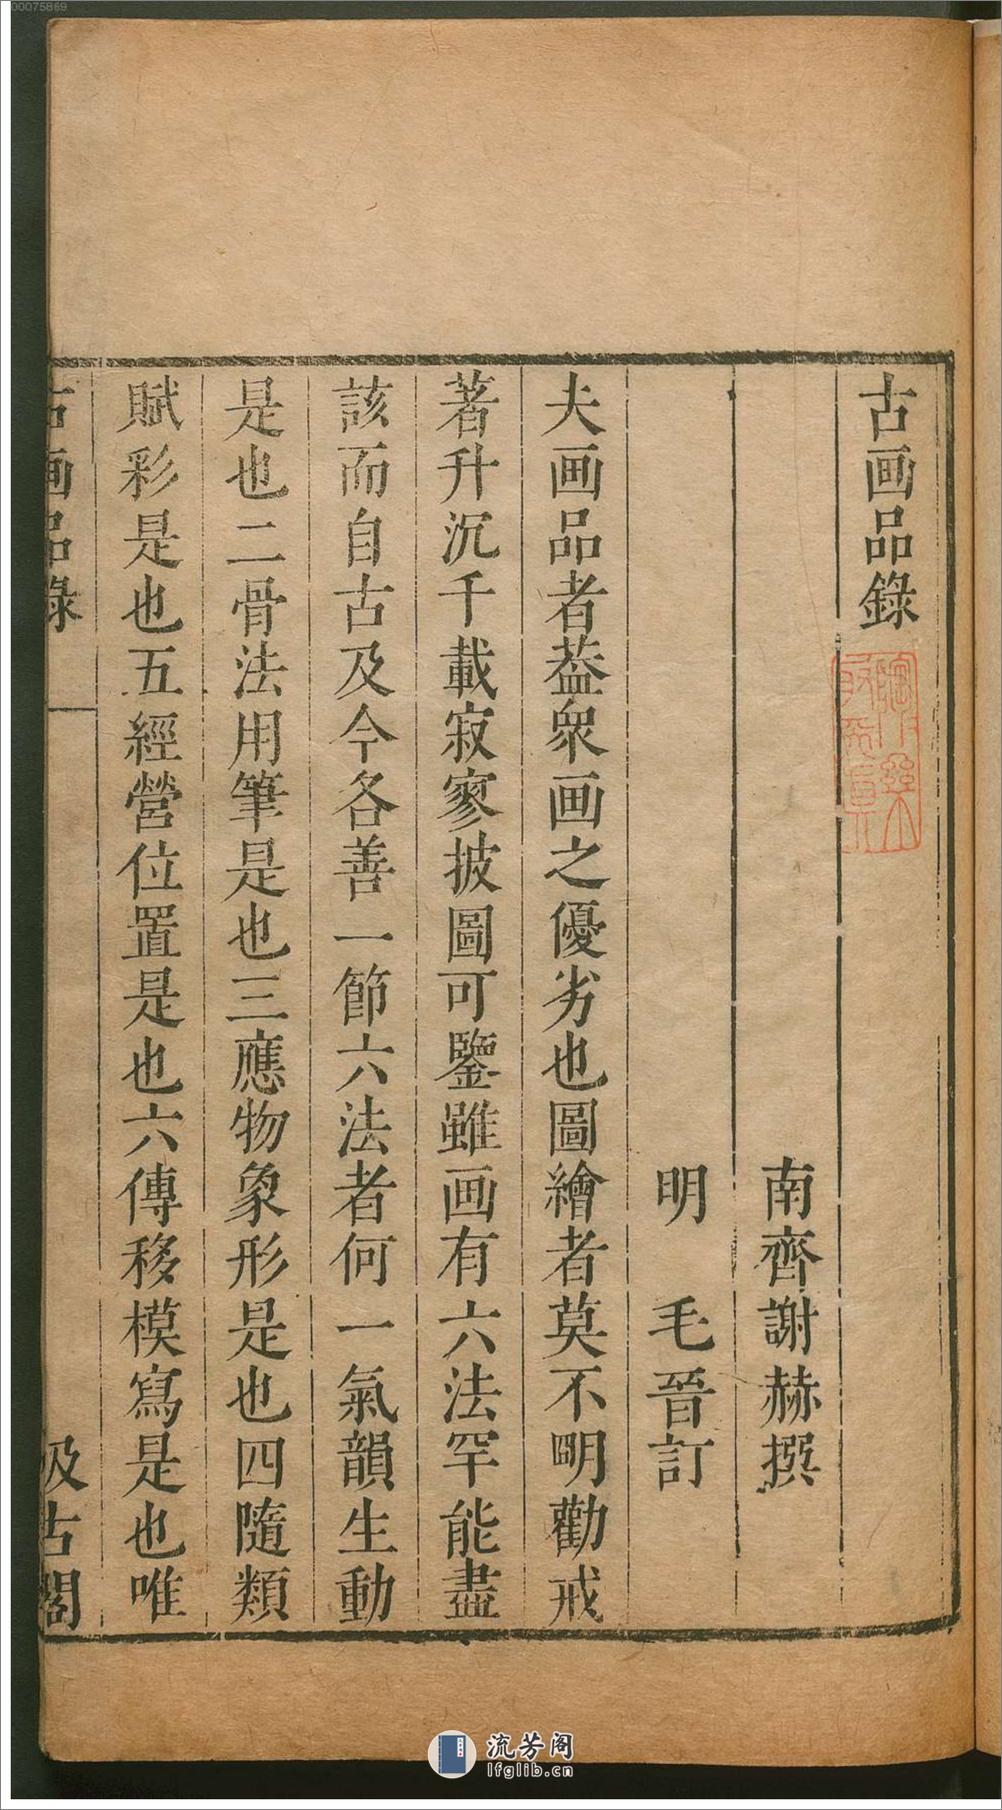 00075869
古画品錄
南齊謝赫撰
明　毛晉訂
夫画品者葢衆画之優劣也圖繪者莫不明勸戒
著升沉千載寂寥披圖可鑒雖画有六法罕能盡
該而自古及今各善一節六法者何一氣韻生動
是也二骨法用筆是也三應物象形是也四隨類
賦彩是也五經營位置是也六傳移模寫是也唯
古画品錄　一　汲古閣
流芳阁
lfglib.cn